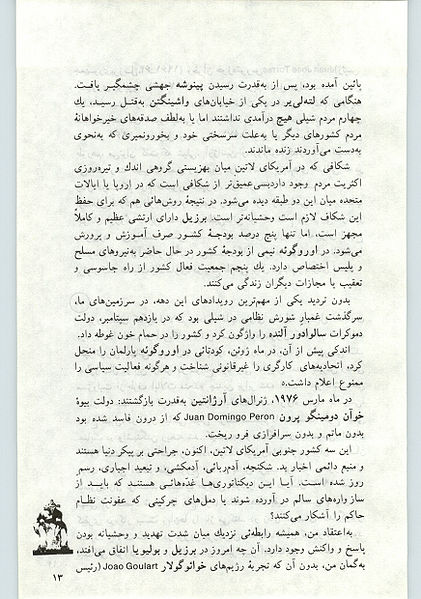 پائین آمده بود، پس از به‌قدرت رسیدن پینوشه جهشی چشمگیر یافت.
هنگامی که لته‌لی‌یر در یکی از خیابان‌های واشینگتن به‌قتل رسید، یك
چهارم مردم شیلی هیچ درآمدی نداشتند اما یا به‌لطف صدقه‌های خیرخواهانهٔ
مردم کشورهای دیگر یا به‌علت سرسختی خود و بخورونمیری که به‌نحوی
به‌دست می‌آوردند زنده ماندند.
شکافی که در آمریکای لاتین میان بهزیستی گروهی اندك و تیره‌روزی
اکثریت مردم وجود دارد بسی عمیق‌تر از شکافی است که در اروپا یا ایالات
متحده میان این دو طبقه دیده می‌شود، در نتیجهٔ روش‌هائی هم که برای حفظ
این شکاف لازم است وحشیانه‌تر است. برزیل دارای ارتشی عظیم و کاملاً
مجهز است، اما تنها پنج درصد بودجهٔ کشور صرف آموزش و پرورش
می‌شود. در اوروگوئه نیمی از بودجهٔ کشور در حال حاضر به‌نیروهای مسلح
و پلیس اختصاص دارد. یك پنجم جمعیت فعال کشور از راه جاسوسی و
تعقیب یا مجازات دیگران زندگی می‌کنند.
بدون تردید یکی از مهم‌ترین رویدادهای این دهه، در سرزمین‌های ما،
سرگذشت غمبار شورش نظامی در شیلی بود که در یازدهم سپتامبر، دولت
دموکرات سالوادور آلنده را واژگون کرد و کشور را در حمام خون غوطه داد.
اندکی پیش از آن، در ماه ژوئن، کودتائی در اوروگوئه پارلمان را منحل
کرد، اتحادیه‌های کارگری را غیرقانونی شناخت و هرگونه فعالیت سیاسی را
ممنوع اعلام داشت.
در ماه مارس ۱۹۷۶، ژنرال‌های آرژانتین به‌قدرت بازگشتند: دولت بیوهٔ
خوآن دومینگو پرون Juan Domingo Peron که از درون فاسد شده بود
بدون ماتم و بدون سرافرازی فرو ریخت.
این سه کشور جنوبی آمریکای لاتین، اکنون، جراحتی بر پیکر دنیا هستند
و منبع دائمی اخبار بد. شکنجه، آدم‌ربائی، آدمکشی، و تبعید اجباری، رسم
روز شده است. آیا این دیکتاتوری‌ها غده‌هائی هستند که باید از
سازواره‌های سالم در آورده شوند یا دمل‌های چرکینی که عفونت نظام
حاکم را آشکار می‌کنند؟
به‌اعتقاد من، همیشه رابطه‌ئی نزدیك میان شدت تهدید و وحشیانه بودن
پاسخ و واکنش وجود دارد. آن چه امروز در برزیل و بولیو یا اتفاق می‌افتد،
به‌گمان من، بدون آن که تجربهٔ رژیم‌های خوائوگولار Joao Goulart (رئیس
۱۳